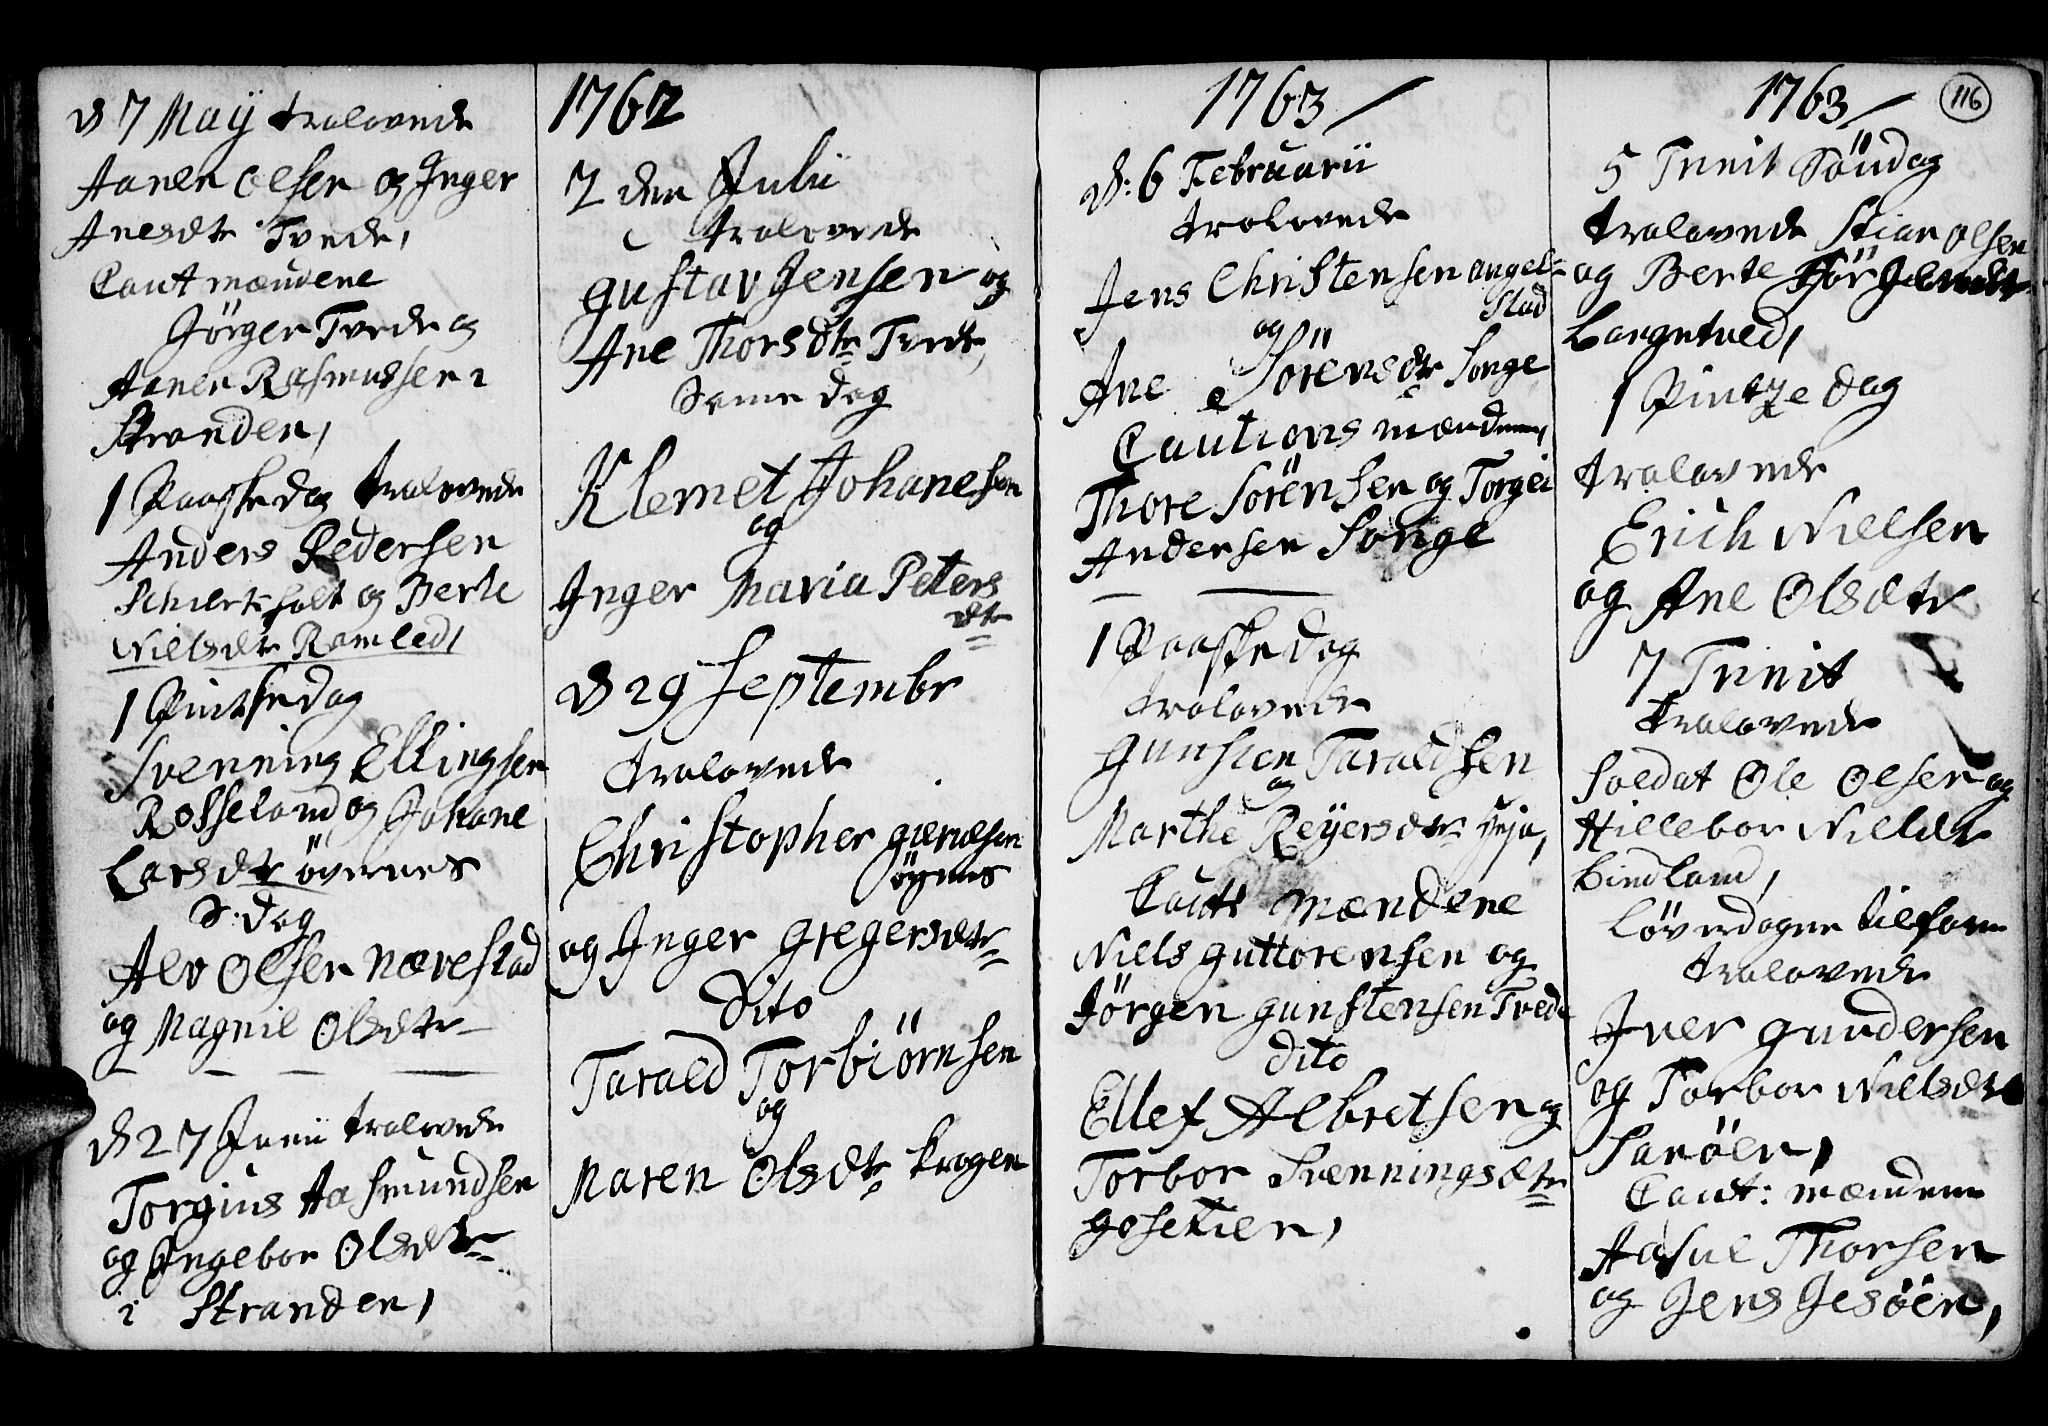 D 7 Maÿ trolovede
Aanen Olsen og Inger
Anesdtr Tvede,
Caut mændene
Jörgen Tvede og
Aanen Rasmussen i
Stranden,
1 Paaskedag trolovede
Anders Pedersen
holt og Berte
Nielsdtr Ramled,
1 Pintsedag
Svenning Ellingsen
Rosseland og Johane
Larsdtr övernes
S: dag
Alv Olsen Næreslad
og Magnil Olsdtr
D 27 Junii trolovede
Torgius Aasmundsen
og Ingebor Olsdtr
i Stranden,
1762
2 den Julii
trolovede
Gustav Jensen og
Ane Thorsdtr Tvede,
Same dag
Klemet Johanesen
og
Inger Maria Peters
dtr
D 29 Septembr
trolovede
Christopher
öÿnes
og Inger Gregersdtr
Dito
Tarald Torbiörnsen
og
Maren Olsdtr Krogen
1763
D: 6 Februarii
trolovede
Jens Christensen Angel=
stad
og
Ane Sörensdtr Songe
Cautions mændene,
Thore Sörensen og Torgei
Andersen Songe
1 Paaske dag
trolovede
Gunsten Taraldsen
og
Marthe Reÿersdtr
Caut: mændene
Niels Guttorensen og
Jörgen Gunstensen Tvede
Dito
Ellef Albretsen og
Torbor Svenningsdtr
Goselien,
1763
116
5 Trinit Söndag
trolovede Stian Olsen
og Berte
Langetved,
1 Pintze dag
trolovede
Erich Nielsen
og Ane Olsdtr
7 Trinit
trolovede
Soldat Ole Olsen og
Hillebor Nielsdtr
Lindland,
Löverdagen tilforn
trolovede
Iver Gundersen
og Torbor Nielsdtr
Sanöen,
Caut: mændene
Aasul Thorsen
og Jens Jesöen,